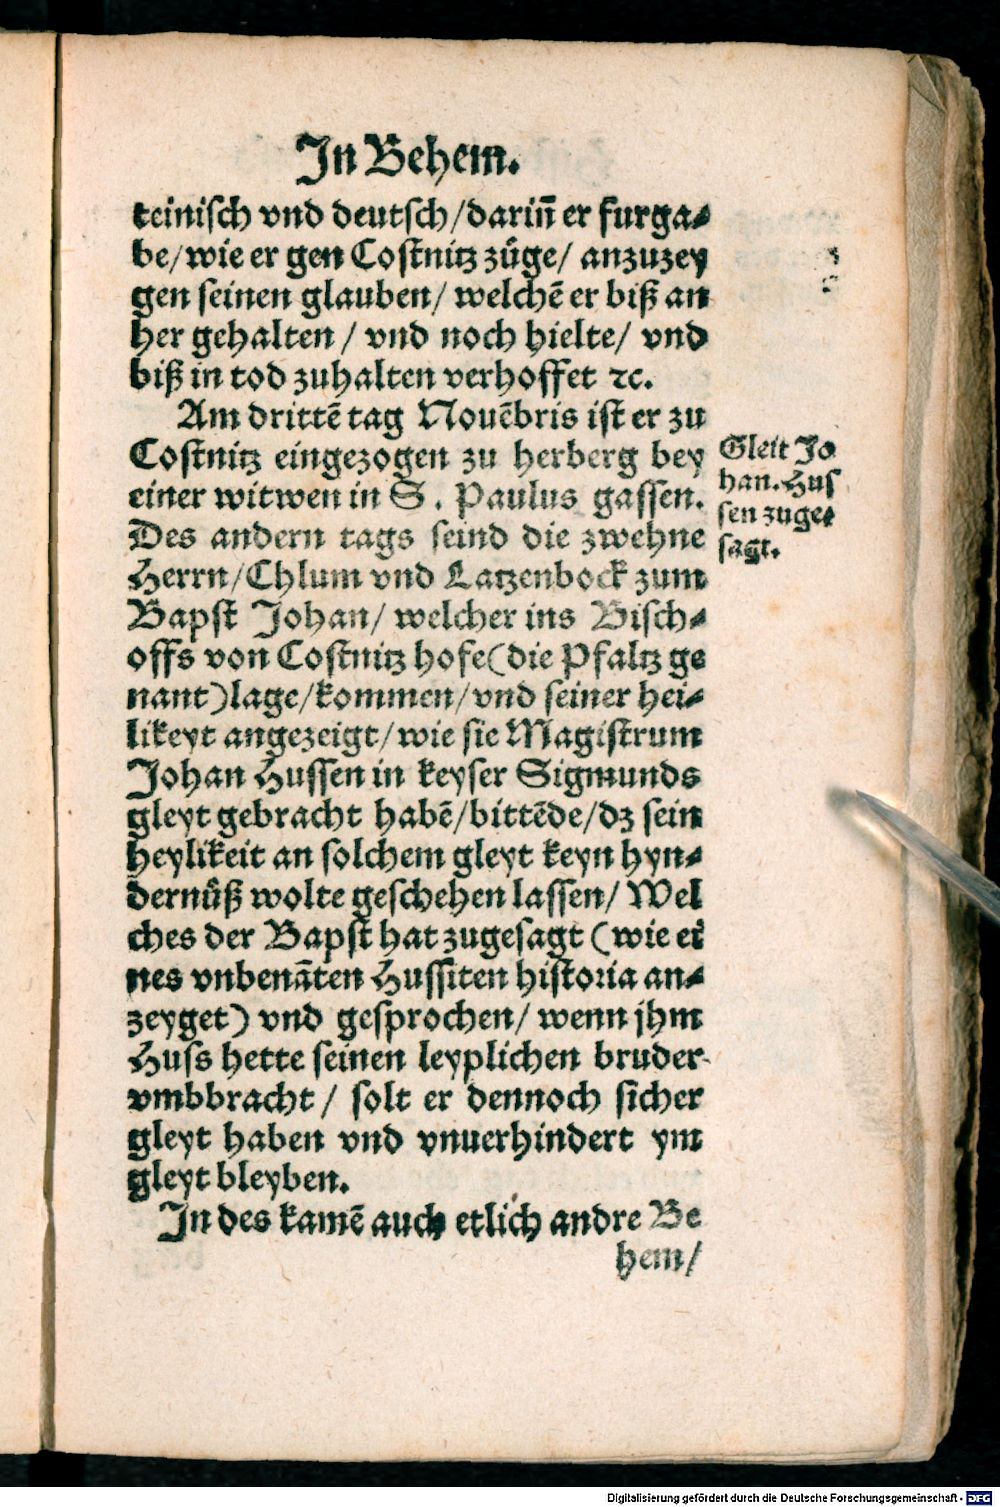 In Behem.
teinisch vnd deutsch/darin̄ er furga⸗
be/wie er gen Costnitz zůge/ anzuzey
gen seinen glauben/ welchē er biß an
her gehalten / vnd noch hielte/ vnd
biß in tod zuhalten verhoffet ꝛc.
Am drittē tag Nouēbris ist er zu
Costnitz eingezogen zu herberg bey
einer witwen in S. Paulus gassen.
Des andern tags seind die zwehne
Herrn/Chlum vnd Latzenbock zum
Bapst Johan/ welcher ins Bisch⸗
offs von Costnitz hofe(die Pfaltz ge
nant)lage/kommen/vnd seiner hei⸗
likeyt angezeigt/wie sie Magistrum
Johan Hussen in keyser Sigmunds
gleyt gebracht habē/bittēde/dz sein
heylikeit an solchem gleyt keyn hyn⸗
dernůß wolte geschehen lassen/ Wel
ches der Bapst hat zugesagt (wie ei
nes vnbenāten Hussiten historia an⸗
zeyget) vnd gesprochen/ wenn jhm
Huss hette seinen leyplichen bruder
vmbbracht / solt er dennoch sicher
gleyt haben vnd vnuerhindert ym
gleyt bleyben.
In des kamē auch etlich andre Be
hem/
Gleit Jo
han. Hus
sen zuge⸗
sagt.
Digitalisierung gefördert durch die Deutsche Forschungsgemeinschaft - DFG